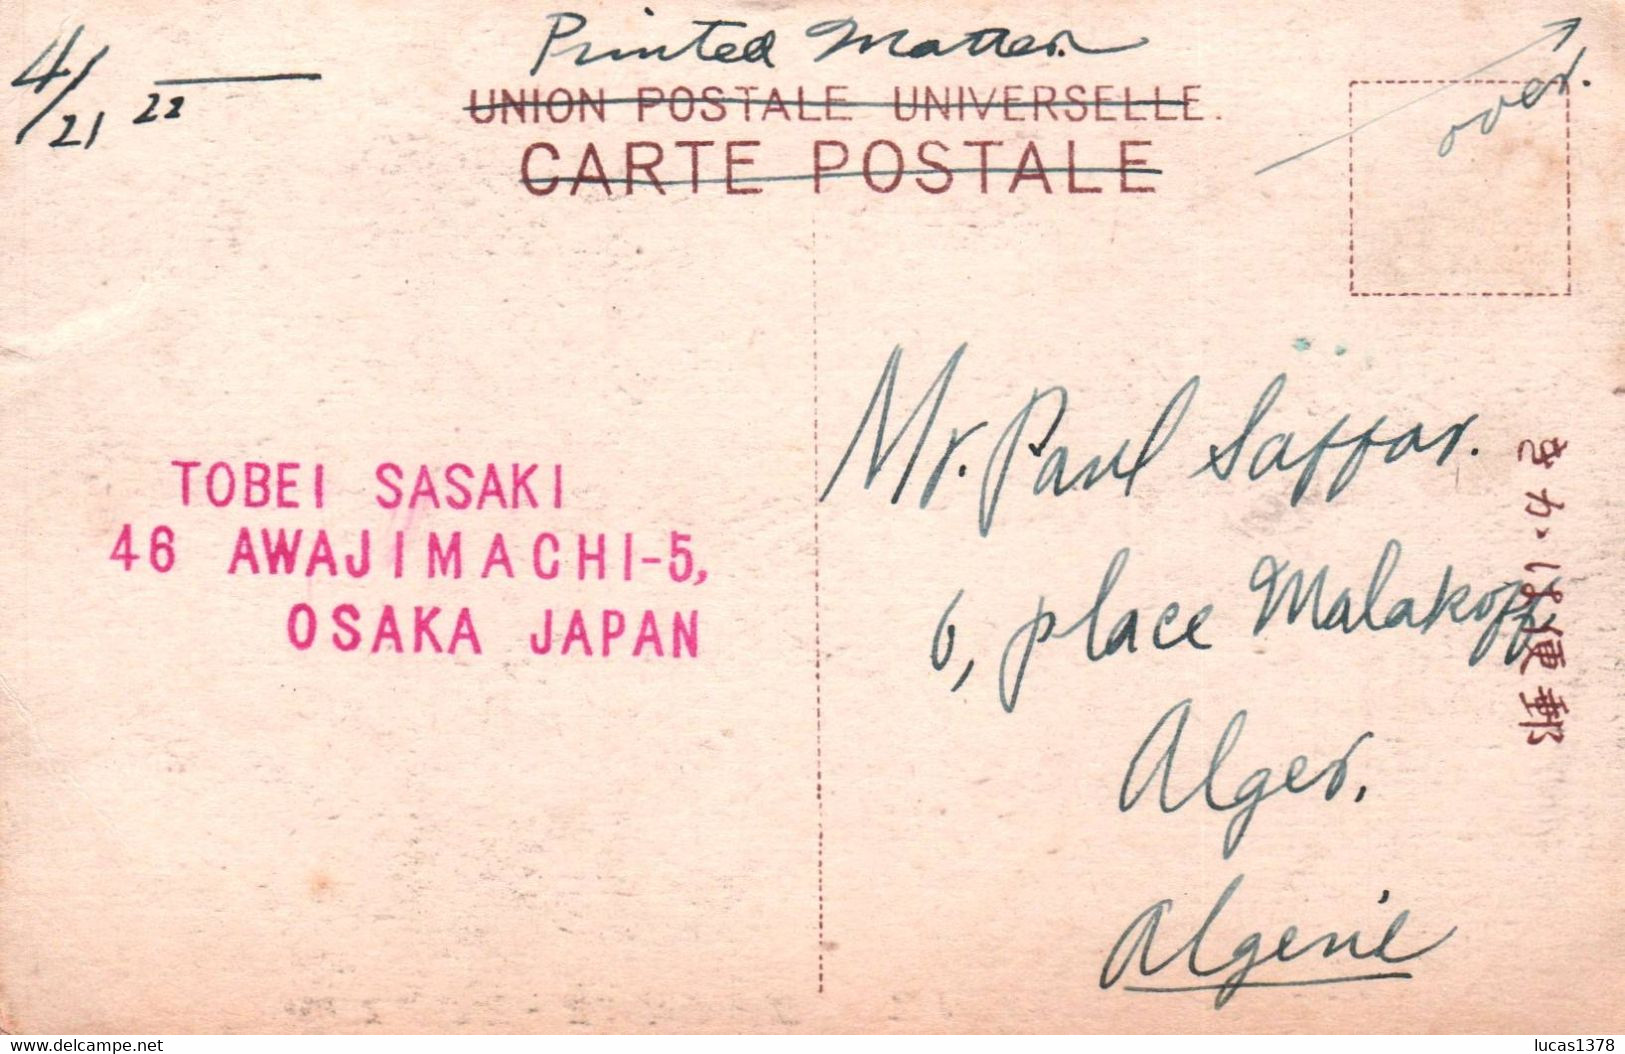 4/21 22
Printed Matter.
UNION POSTALE UNIVERSELLE.
CARTE POSTALE
over.
TOBEI SASAKI
46 AWAJIMACHI-5,
OSAKA JAPAN
Mr. Paul Saffar.
6, place Malakoff
Alger.
Algerie
きかは便郵
delcampe.net
lucas1378